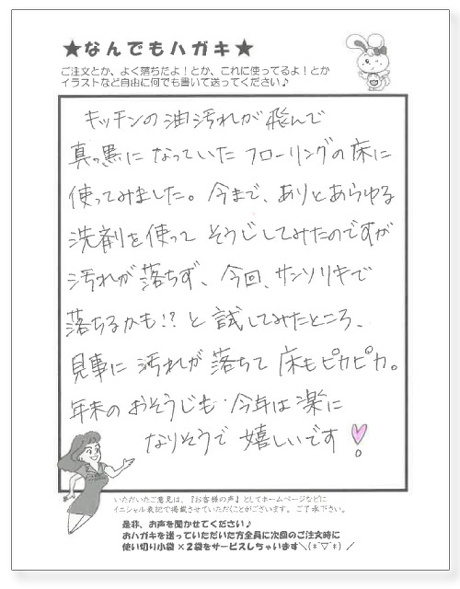 ★なんでもハガキ★
ご注文とか、よく落ちだよ!とか、これに使ってるよ!とか
イラストなど自由に何でも書いて送ってください♪
キッチンの油汚れが飛んで
真っ黒に なっていた フローリングの床に
使ってみました。今まで、ありとあらゆる
洗剤を使って そうじしてみたのですが
汚れが落ちず、今回、サンソリキで
落ちるかも!?と試してみたところ、
見事に 汚れが 落ちて 床もピカピカ。
年末の おそうじも 今年は楽に
なりそうで 嬉しいです
いただいたご意見は、『お客様の声』としてホームページなどに
イニシャル表記で掲載させていただくことがございます。ご了承下さい。
是非、お声を聞かせてください♪
おハガキを送っていただいた方全員に次回のご注文時に
使い切り小袋×2袋をサービスしちゃいます＼(*^▽^*)／